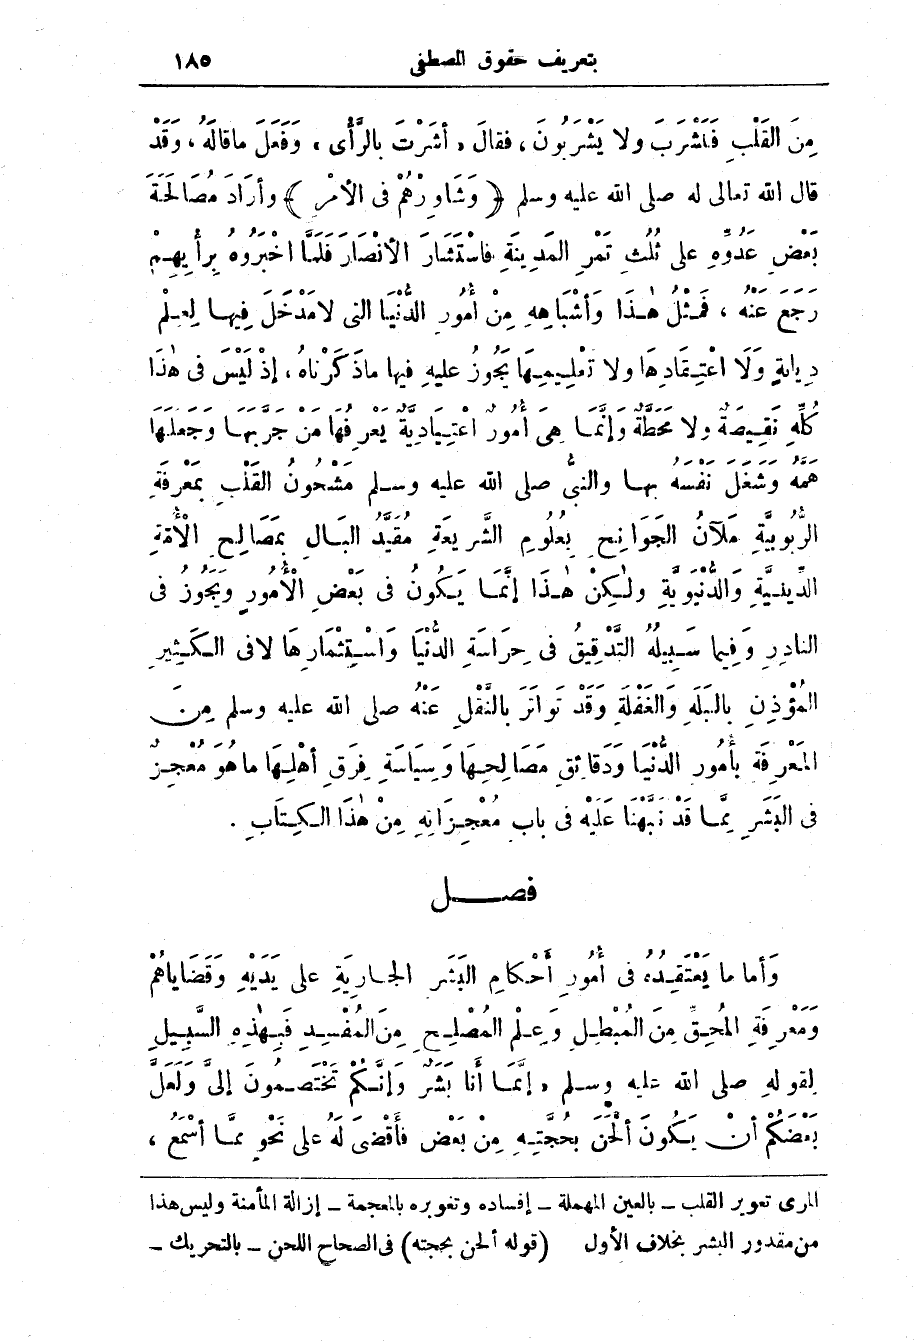 بتعريف حقوق المصطفى ١٨٥
مِنَ القَلْبِ فَنَشْرَبَ ولا يَشْرَبُونَ ، فقالَ « أشَرْتَ بالرَّأْى » وَفَعَلَ ماقالَهُ ، وَقَدْ
قال الله تعالى له صلى الله عليه وسلم ﴿ وَشَاوِرْهُمْ فى الأمْرِ ﴾ وأرَادَ مُصَالَحَةَ
بَعْضِ عَدُوِّهِ على ثُلُثِ تَمْرِ المَدِينَةِ فاسْتَشَارَ الأنْصَارَ فَلَمَّا اخْبَرُوهُ بِرأيِهِمْ
رَجَعَ عَنْهُ ، فَمِثْلُ هٰذا وَأَشْبَاهِهِ مِنْ أُمُورِ الدُّنْيَا التى لامَدْخَلَ فِيها لِعِلْمِ
دِيانةٍ وَلَا اعْتِقادِهَا ولا تَعْلِيمِهَا يَجُوزُ عليهِ فيها ماذَكَرْناهُ ، إذْ لَيْسَ فى هٰذا
كُلِّهِ نَقِيصَةٌ ولا مَحَطَّةٌ وَإِنَّمَا هِىَ أُمُورٌ اعْتِيَادِيَّةٌ يَعْرِفُهَا مَنْ جَرَّبَهَا وَجَعَلَهَا
هَمَّهُ وَشَغَلَ نَفْسَهُ بِهَا والنبىُّ صلى الله عليه وسلم مَشْحُونُ القَلْبِ بِمَعْرِفَةِ
الرُّبُوبِيَّةِ مَلآنُ الجَوَانِحِ بِعُلُومِ الشَّرِيعَةِ مُقَيَّدُ البَالِ بِمَصَالِحِ الأُمَّةِ
الدِّينِيَّةِ وَالدُّنْيَوِيَّةِ ولٰكِنْ هٰذا إنَّمَا يَكُونُ فى بَعْضِ الأُمُورِ وَيَجُوزُ فى
النادِرِ وَفِيما سَبِيلُهُ التَّدْقِيقُ فى حِرَاسَةِ الدُّنْيَا وَاسْتِثْمارِهَا لافى الكَثِيرِ
المُؤْذِنِ بالبَلَهِ وَالغَفْلَةِ وَقَدْ تَوَاتَرَ بالنَّقْلِ عَنْهُ صلى الله عليه وسلم مِنَ
المَعْرِفَةِ بأُمُورِ الدُّنْيَا وَدَقائِقِ مَصَالِحِهَا وَسِيَاسَةِ فِرَقِ أهْلِهَا ماهُوَ مُعْجِزٌ
فى البَشَرِ مِمَّا قَدْ نَبَّهْنَا عَلَيْهِ فى باب مُعْجِزَاتِهِ مِنْ هٰذَا الكِتَابِ .
فصل
وَأما ما يَعْتَقِدُهُ فى أُمُورِ أَحْكامِ البَشَرِ الجارِيَةِ على يَدَيْهِ وَقَضَاياهُمْ
وَمَعْرِفَةِ المُحِقِّ مِنَ المُبْطِلِ وَعِلْمِ المُصْلِحِ مِنَ المُفْسِدِ فَبِهٰذِهِ السَّبِيلِ
لِقولهِ صلى الله عليه وسلم « إنَّمَا أنا بَشَرٌ وَإِنَّكُمْ تَخْتَصِمُونَ إلىَّ وَلَعَلَّ
بَعْضَكُمْ أنْ يَكُونَ ألْحَنَ بحُجَّتِهِ مِنْ بَعْضٍ فأَقْضىَ لَهُ على نَحْوٍ ممَّا أسْمَعُ ،
المرى تعوير القلب ــ بالعين المهملة ــ إفساده وتغويره بالمعجمة ــ إزالة المأمنة وليس هذا
من مقدور البشر بخلاف الأول (قوله ألحن بحجته) فى الصحاح اللحن ــ بالتحريك ــ